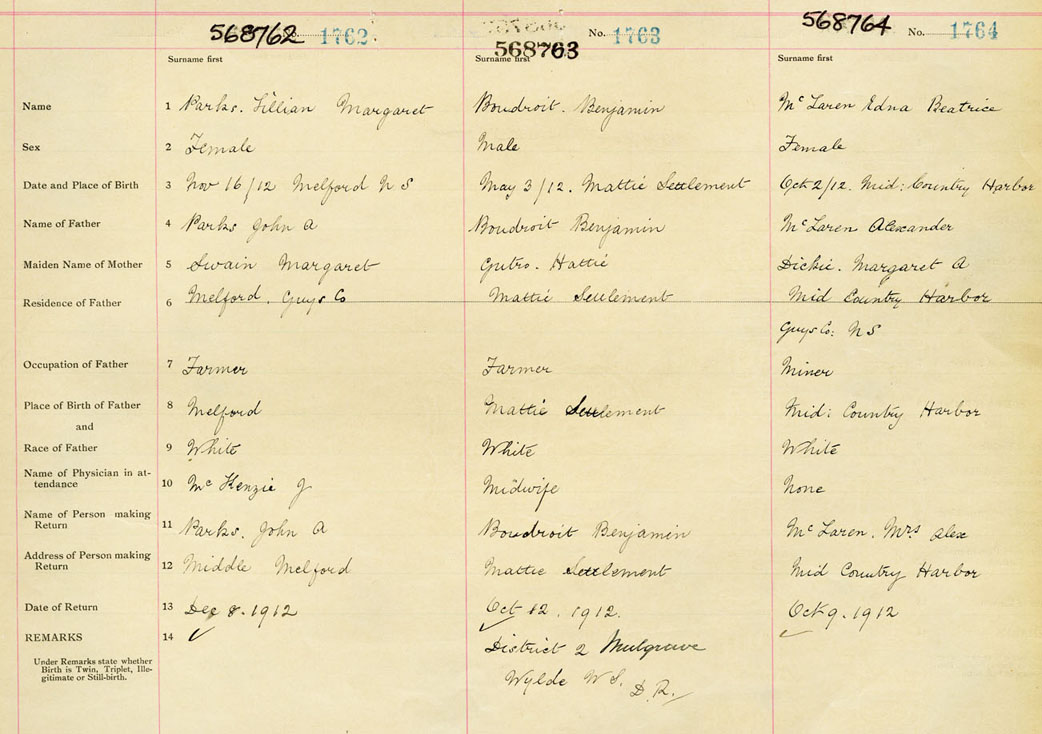 568762 1762.
568763 No. 1763
568764 No. 1764
Surname first Surname first Surname first
Name 1 Parks. Lillian Margaret Boudroit. Benjamin McLaren Edna Beatrice
Sex 2 Female Male Female
Date and Place of Birth 3 Nov 16/12 Melford N S May 3/12. Mattie Settlement Oct 2/12. Mid: Country Harbor
Name of Father 4 Parks John A Boudroit Benjamin McLaren Alexander
Maiden Name of Mother 5 Swain Margaret Gutro. Hattie Dickie. Margaret A
Residence of Father 6 Melford. Guys Co Mattie Settlement Mid Country Harbor
Guys Co: N S
Occupation of Father 7 Farmer Farmer Miner
Place of Birth of Father 8 Melford Mattie Settlement Mid: Country Harbor
and
Race of Father 9 White White White
Name of Physician in at-
tendance 10 McKenzie J Midwife None
Name of Person making
Return 11 Parks. John A Boudroit Benjamin McLaren. Mrs Alex
Address of Person making
Return 12 Middle Melford Mattie Settlement Mid Country Harbor
Date of Return 13 Dec 8. 1912 Oct 12. 1912. Oct 9. 1912
REMARKS 14 District 2 Mulgrave
Under Remarks state whether
Birth is Twin, Triplet, Ille-
gitimate or Still-birth.
Wylde W S. D. R.